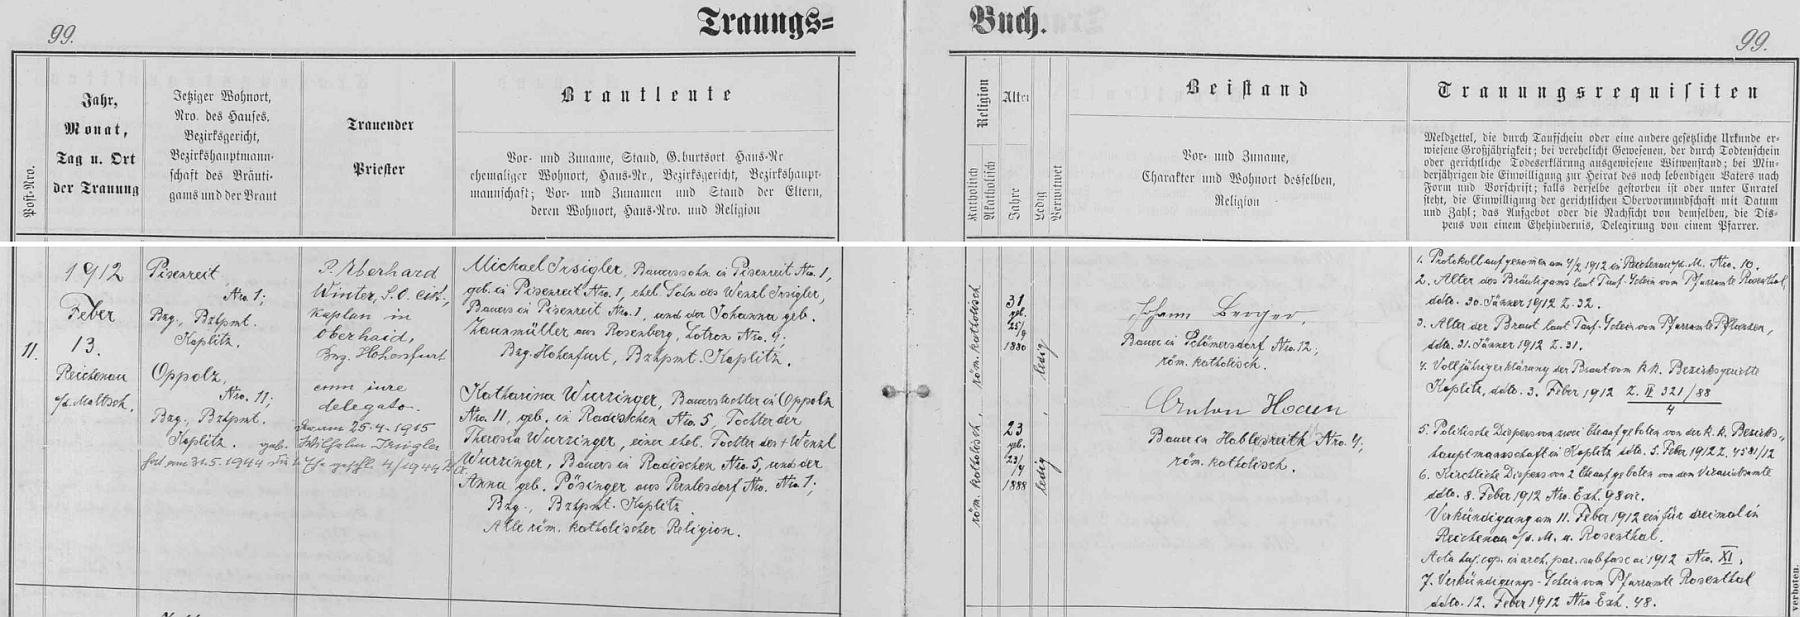 99.
Trauungs=
Buch.
99.
Post-Nro.
Jahr,
Monat,
Tag u. Ort
der Trauung
Jetziger Wohnort,
Nro. des Hauses,
Bezirksgericht,
Bezirkshauptmann-
schaft des Bräuti-
gams und der Braut
Trauender
Priester
Brautleute
Vor- und Zuname, Stand, G.burtsort Haus-Nr
ehemaliger Wohnort, Haus-Nr., Bezirksgericht, Bezirkshaupt-
mannschaft; Vor- und Zunamen und Stand der Eltern,
deren Wohnort, Haus-Nro. und Religion
Religion
Katholisch
Akatholisch
Alter
Jahre
Ledig
Verwitwet
Beistand
Vor- und Zuname,
Charakter und Wohnort desselben,
Religion
Trauungsrequisiten
Meldzettel, die durch Taufschein oder eine andere gesetzliche Urkunde er-
wiesene Großjährigkeit; bei verehelicht Gewesenen, der durch Todtenschein
oder gerichtliche Todeserklärung ausgewiesene Witwenstand; bei Min-
derjährigen die Einwilligung zur Heirat des noch lebendigen Vaters nach
Form und Vorschrift; falls derselbe gestorben ist oder unter Curatel
steht, die Einwilligung der gerichtlichen Obervormundschaft mit Datum
und Zahl; das Aufgebot oder die Nachsicht von demselben, die Dis-
pens von einem Ehehindernis, Delegirung von einem Pfarrer.
11.
1912
Feber
13.
Reichenau
a/d. Maltsch.
Pisenreit
Nro. 1;
Bzg., Bzhpmt.
Kaplitz.
Oppolz,
Nro. 11;
Bzg., Bzhpmt.
Kaplitz.
P. Eberhard
Winter, S. O. Cist.,
Kaplan in
Oberhaid,
Bzg. Hohenfurt
cum iure
delegato.
25.4.1915
Wilhelm Irsigler
31.5.1944
Michael Irsigler, Bauerssohn in Pisenreit Nro. 1,
geb. in Pisenreit Nro. 1, ehel. Sohn des Wenzl Irsigler,
Bauers in Pisenreit Nro. 1, und der Johanna geb.
aus Rosenberg, Latron Nro. 4;
Bzg. Hohenfurt, Bzhpmt. Kaplitz.
Katharina Wurzinger, Bauerstochter in Oppolz
Nro. 11, geb. in Radischen Nro. 5, Tochter der
Theresia Wurzinger, einer ehel. Tochter des † Wenzl
Wurzinger, Bauers in Radischen Nro. 5, und der
Anna geb. Pösinger aus Nro. 1;
Bzg., Bzhpmt. Kaplitz.
Alle röm. katholischer Religion.
röm. katholisch
31
geb.
25/9
1880
ledig
röm. katholisch
23
geb.
23/4
1888
ledig
Johann Berger,
Bauer in Schömersdorf Nro. 12;
röm. katholisch.
Anton
Bauer in Hablesreith Nro. 4;
röm. katholisch.
1. Protokoll aufgenommen am 4/2 1912 in Reichenau a/d. M. Nro. 10.
2. Alter des Bräutigams laut Tauf-Schein vom Pfarramte Rosenthal,
ddto. 30. Jänner 1912 Z. 32.
3. Alter der Braut laut Tauf-Schein von Pfarramte Pflanzen,
ddto. 31. Jänner 1912 Z. 31.
4. Volljährigerklärung der Braut vom k.k. Bezirksgerichte
Kaplitz, ddto. 3. Feber 1912 Z. II 321/88
4
5. Politische Dispens von zwei Eheaufgeboten von der k. k. Bezirks-
hauptmannschaft in Kaplitz ddto. 5. Feber 1912 Z. 4581/12
6. Kirchliche Dispens von 2 Eheaufgeboten von dem Vicariatsamte
ddto. 8. Feber 1912 Nro. Exh. 98 vic.
Verkündigung am 11. Feber 1912 ein für dreimal in
Reichenau a/d. M. u. Rosenthal.
in arch. par. sub fasc. a. 1912 Nro. XI.
7. Verkündigungs-Schein vom Pfarramte Rosenthal
ddto. 12. Feber 1912 Nro Exh. 48.
verboten.